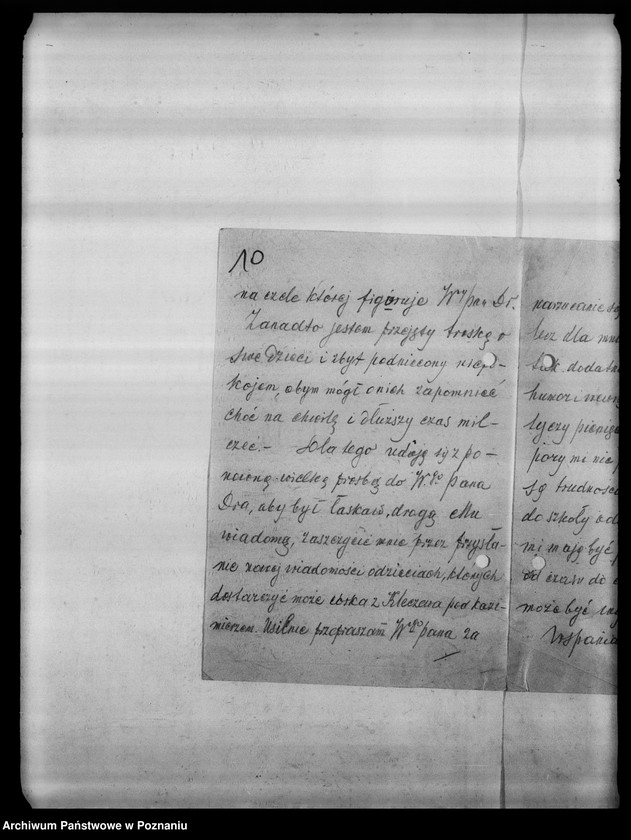 10
na czele której figóruje Wny pan Dr.
Zanadto jestem przejęty troską o
swe dzieci i zbyt podniecony niepo-
kojem, abym mógł o nich zapomnieć
choć na chwilę i dłuższy czas mil-
czeć. – Dla tego udaję się z po-
nowną wielką prośbą do W.go pana
Dra, aby był łaskaw, drogą Mu
wiadomą, zaszczycić mnie przez przysła-
nie nowej wiadomości o dzieciach, których
dostarczyć może córka z Kleczewa pod Kazi-
mierzem. Usilnie przepraszam Wgo pana za
lecz dla mnie
tak dodat
humor i
tyczy pienię
pory mi nie
są trudności
do szkoły
mi mają być
od czasu do
może być
Wspania
Archiwum Państwowe w Poznaniu